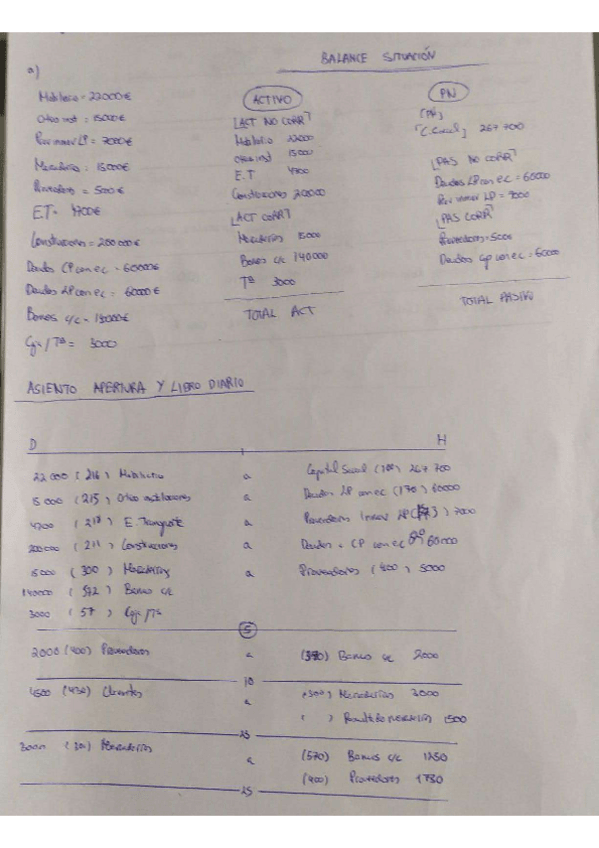 BALANCE SITUACIÓN
a)
Mobiliario = 22000€
Otras inst = 15000€
Prov inmov LP = 7000€
Mercaderías = 15000€
Proveedores = 5000€
E.T = 4700€
Construcciones = 200000€
Deudas CP con ec = 60000€
Deudas LP con ec = 60000€
Bancos c/c =
Caja / Tª = 3000
ACTIVO
[ACT NO CORR]
Mobiliario 22000
Otras inst 15000
E.T 4700
Construcciones 200000
[ACT CORR]
Mercaderías 15000
Bancos c/c 140000
Tª 3000
TOTAL ACT
PN
[PN]
[C. Social] 267 700
[PAS NO CORR]
Deudas LP con ec = 60000
Prov inmov LP = 7000
[PAS CORR]
Proveedores = 5000
Deudas cp con ec = 60000
TOTAL PASIVO
ASIENTO APERTURA Y LIBRO DIARIO
D H
22000 (216) Mobiliario a Capital Social (100) 267 700
15000 (215) Otras instalaciones a Deudas LP con ec (170) 60000
4700 (218) E. Transporte a Proveedores inmov LP (173) 7000
200000 (211) Construcciones a Deudas CP con ec 60000
15000 (300) Mercaderías a Proveedores (400) 5000
140000 (572) Bancos c/c
3000 (57 ) Caja / Tª
5
2000 (400) Proveedores a Bancos c/c 2000
10
4500 (430) Clientes a (300) Mercaderías 3000
( ) Result de mercaderías 1500
23
3000 Mercaderías a (570) Bancos c/c 1250
(400) Proveedores 1750
25